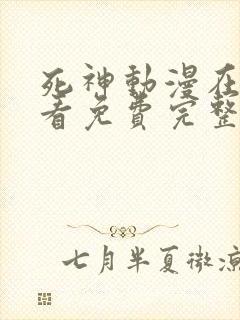 死神動漫在
看免費完整
七月半夏微涼